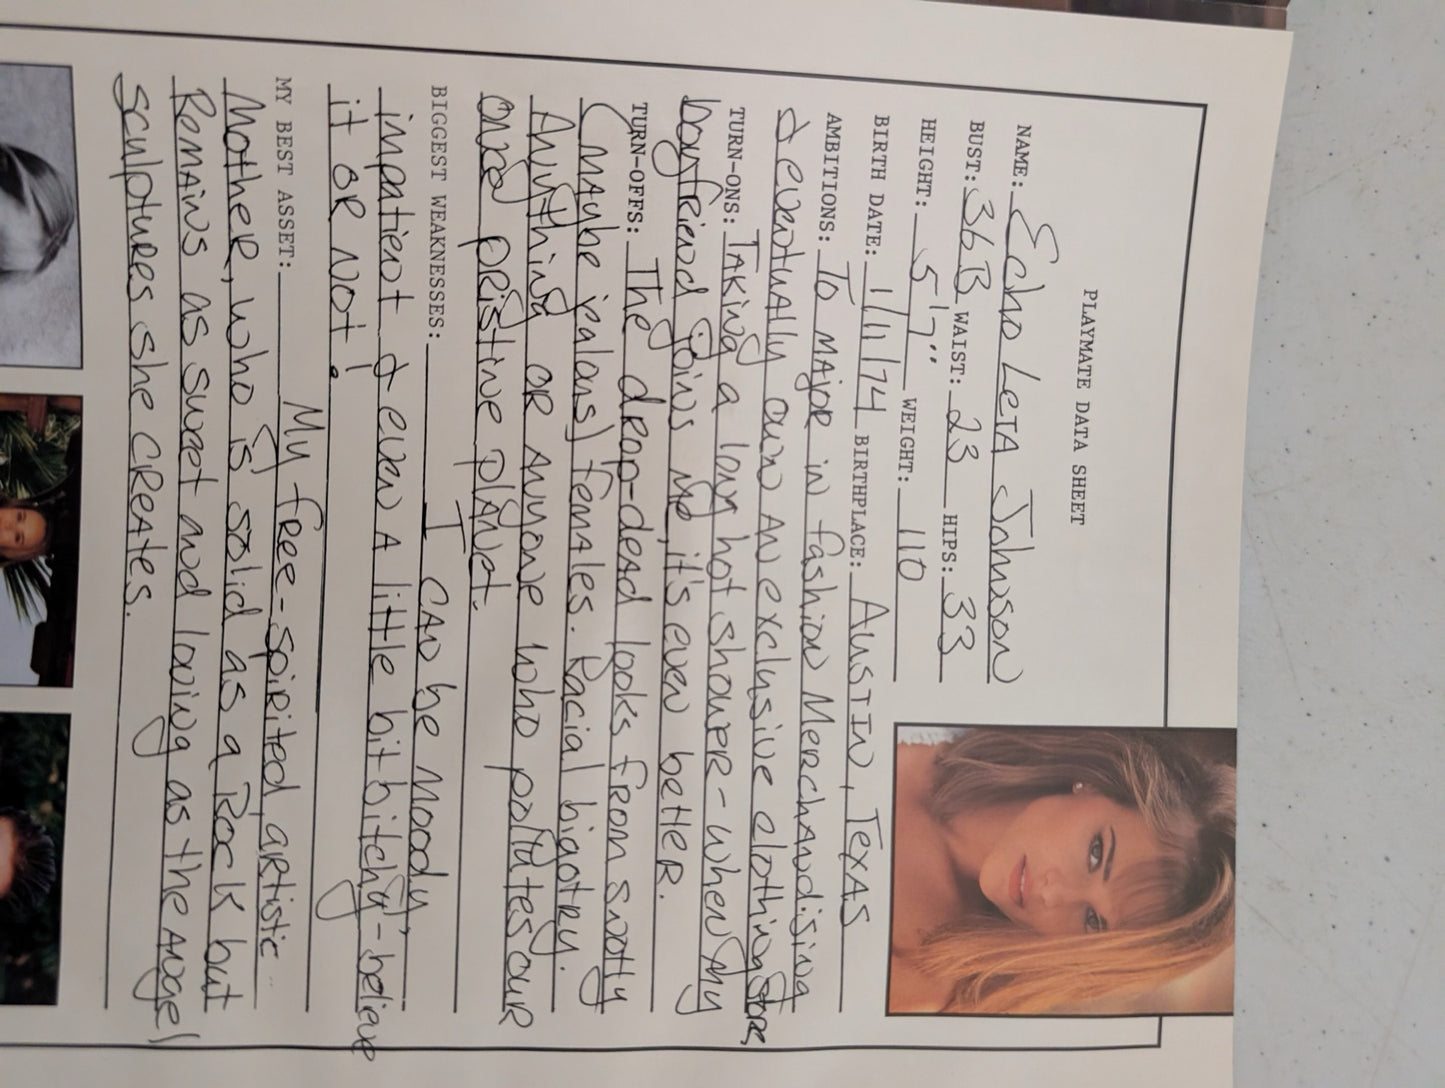 PLAYMATE DATA SHEET
NAME: Echo Leta Johnson
BUST: 36B WAIST: 23 HIPS: 33
HEIGHT: 5'7" WEIGHT: 110
BIRTH DATE: 1/11/74 BIRTHPLACE: Austin, Texas
AMBITIONS: To major in fashion Merchandising
& eventually own an exclusive clothing store
TURN-ONS: Taking a long hot shower-when my
boyfriend joins me, it's even better.
TURN-OFFS: The drop-dead looks from snotty
(maybe jealous) females. Racial bigotry.
Anything or anyone who pollutes our
once pristine planet.
BIGGEST WEAKNESSES: I can be moody,
impatient & even a little bit bitchy - believe
it or not!
MY BEST ASSET: My free-spirited, artistic
Mother, who is solid as a Rock but
Remains as sweet and loving as the angel
sculptures she creates.